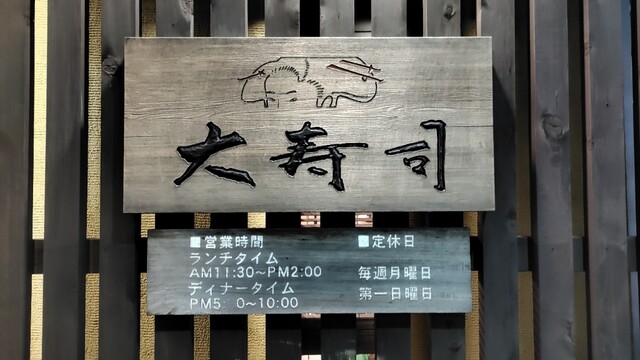 大寿司
■営業時間
ランチタイム
AM11:30~PM2:00
ディナータイム
PM5 0~10:00
■定休日
毎週月曜日
第一日曜日